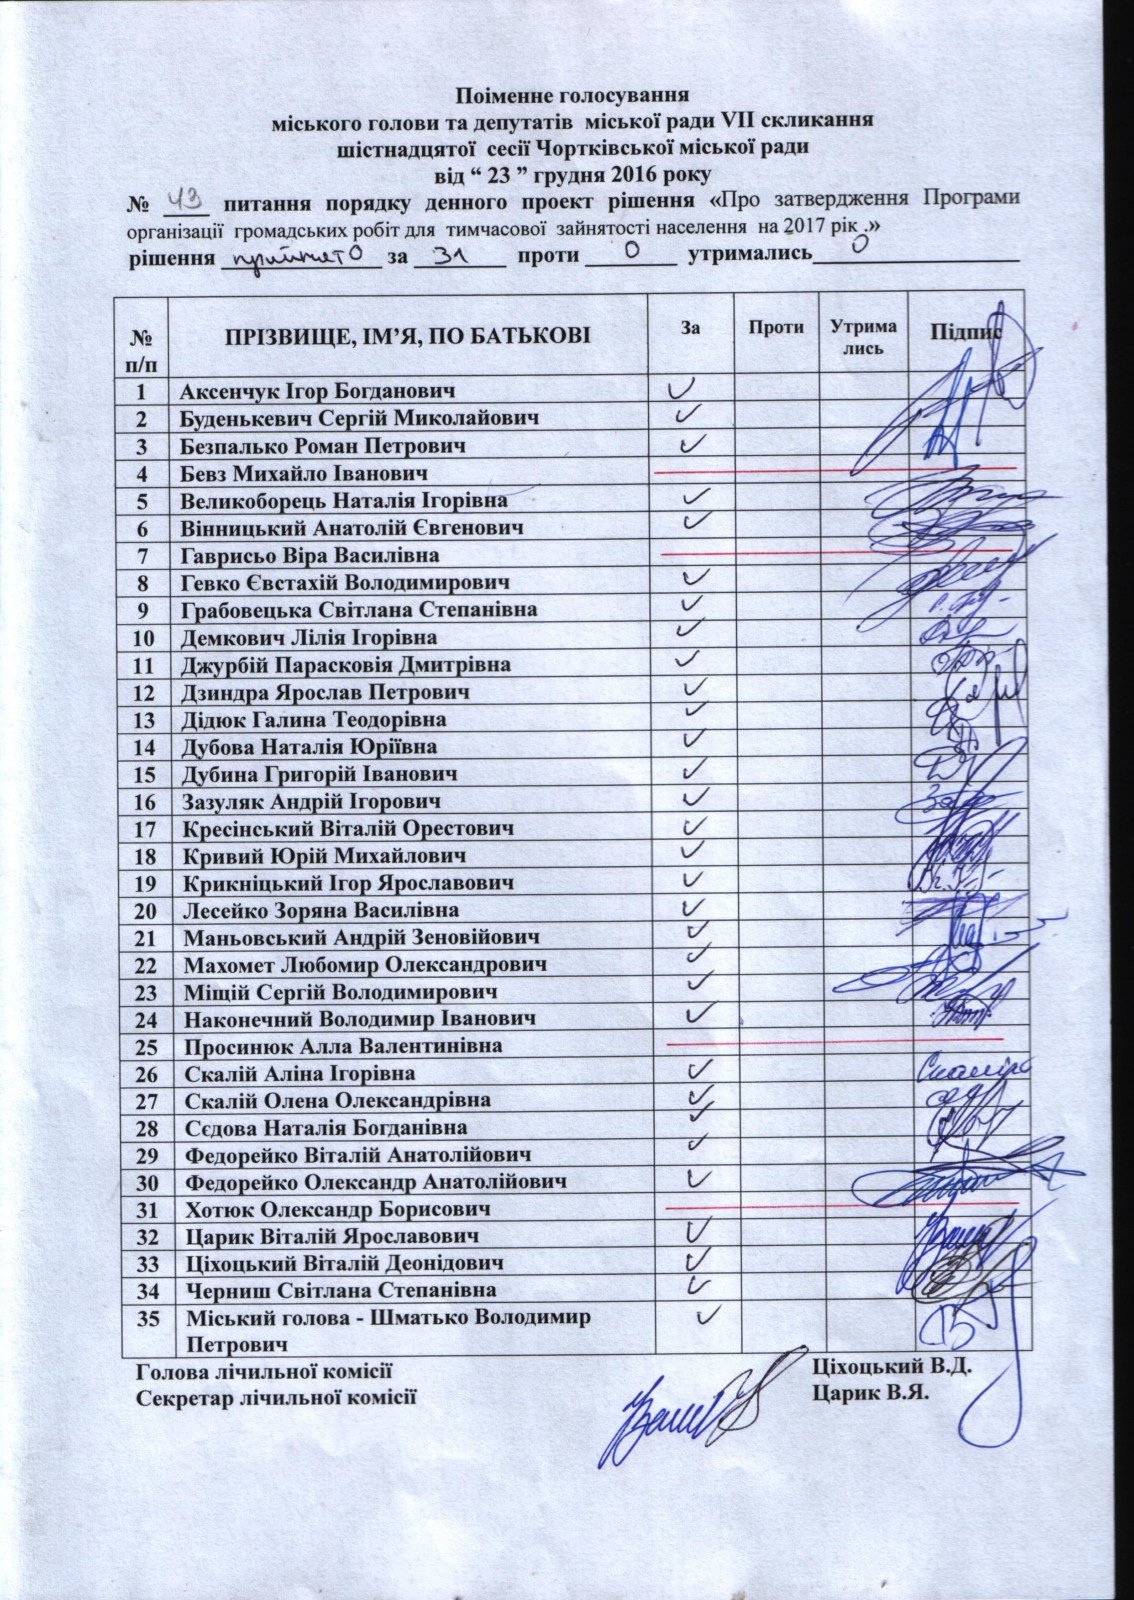 Поіменне голосування
міського голови та депутатів міської ради VII скликання
шістнадцятої сесії Чортківської міської ради
від “ 23 ” грудня 2016 року
№ 43 питання порядку денного проект рішення «Про затвердження Програми
організації громадських робіт для тимчасової зайнятості населення на 2017 рік .»
рішення прийнято за 31 проти 0 утримались 0
№ п/п ПРІЗВИЩЕ, ІМ’Я, ПО БАТЬКОВІ За Проти Утрима лись Підпис
1 Аксенчук Ігор Богданович ✓
2 Буденькевич Сергій Миколайович ✓
3 Безпалько Роман Петрович ✓
4 Бевз Михайло Іванович
5 Великоборець Наталія Ігорівна ✓
6 Вінницький Анатолій Євгенович ✓
7 Гаврисьо Віра Василівна
8 Гевко Євстахій Володимирович ✓
9 Грабовецька Світлана Степанівна ✓
10 Демкович Лілія Ігорівна ✓
11 Джурбій Парасковія Дмитрівна ✓
12 Дзиндра Ярослав Петрович ✓
13 Дідюк Галина Теодорівна ✓
14 Дубова Наталія Юріївна ✓
15 Дубина Григорій Іванович ✓
16 Зазуляк Андрій Ігорович ✓
17 Кресінський Віталій Орестович ✓
18 Кривий Юрій Михайлович ✓
19 Крикніцький Ігор Ярославович ✓
20 Лесейко Зоряна Василівна ✓
21 Маньовський Андрій Зеновійович ✓
22 Махомет Любомир Олександрович ✓
23 Міщій Сергій Володимирович ✓
24 Наконечний Володимир Іванович ✓
25 Просинюк Алла Валентинівна
26 Скалій Аліна Ігорівна ✓
27 Скалій Олена Олександрівна ✓
28 Сєдова Наталія Богданівна ✓
29 Федорейко Віталій Анатолійович ✓
30 Федорейко Олександр Анатолійович ✓
31 Хотюк Олександр Борисович
32 Царик Віталій Ярославович ✓
33 Ціхоцький Віталій Деонідович ✓
34 Черниш Світлана Степанівна ✓
35 Міський голова - Шматько Володимир ✓
Петрович
Голова лічильної комісії Ціхоцький В.Д.
Секретар лічильної комісії Царик В.Я.